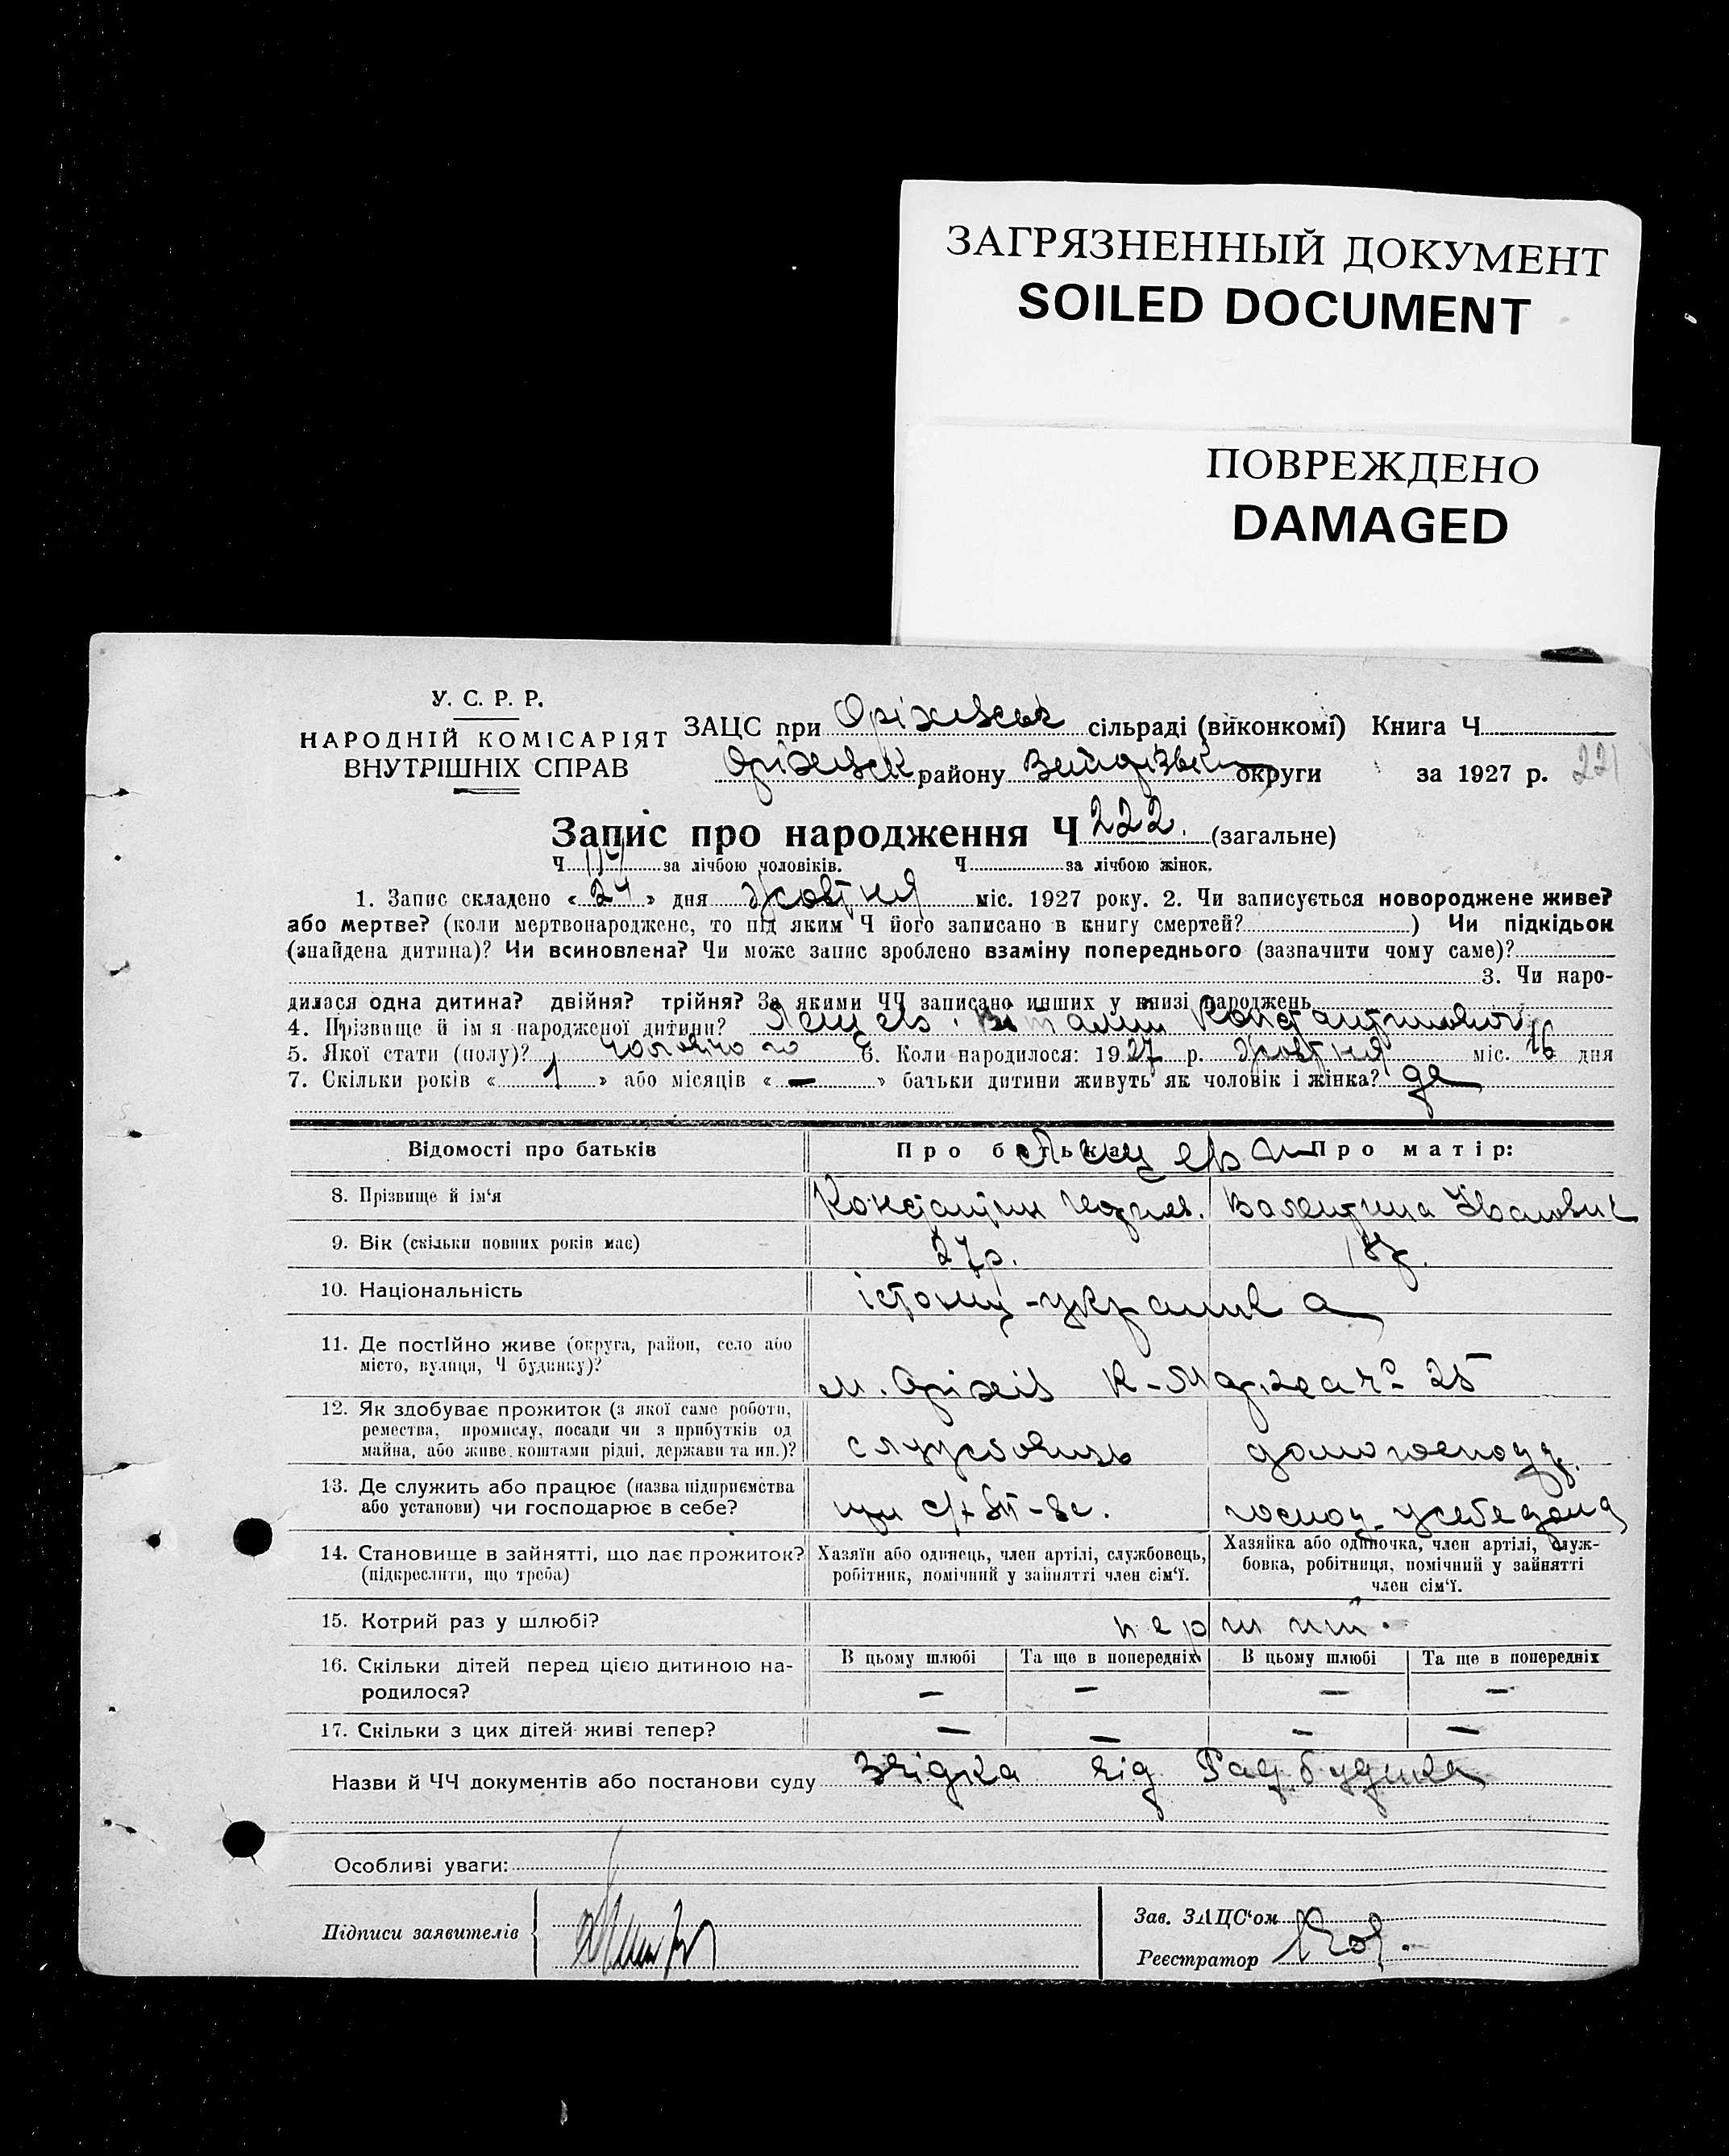 ЗАГРЯЗНЕННЫЙ ДОКУМЕНТ
SOILED DOCUMENT
ПОВРЕЖДЕНО
DAMAGED
У. С. Р. Р.
НАРОДНІЙ КОМІСАРІЯТ
ВНУТРІШНІХ СПРАВ
ЗАЦС при Оріхівськ сільраді (виконкомі) Книга Ч
Оріхівськ району округи за 1927 р. 221
Запис про народження Ч 222. (загальне)
Ч 117 за лічбою чоловіків. Ч за лічбою жінок.
1. Запис складено « 24 » дня Жовтня міс. 1927 року. 2. Чи записується новороджене живе?
або мертве? (коли мертвонароджене, то під яким Ч його записано в книгу смертей? ) Чи підкідьок
(знайдена дитина)? Чи всиновлена? Чи може запис зроблено взаміну попереднього (зазначити чому саме)?
3. Чи наро-
дилася одна дитина? двійня? трійня? За якими ЧЧ записано инших у книзі народжень
4. Прізвище й ім'я народженої дитини? Константинович
5. Якої стати (полу)? чоловічого 6. Коли народилося: 1927 р. Жовтня міс. 16 дня
7. Скільки років « 1 » або місяців « — » батьки дитини живуть як чоловік і жінка? да
Відомості про батьків
Про батька Про матір:
8. Прізвище й ім'я Константин Валентина Іванович
9. Вік (скільки повних років має) 27р. 18р.
10. Національність естонец - украинка
11. Де постійно живе (округа, район, село або
місто, вулиця, Ч будинку)? м. Оріхів К-Маркса 25
12. Як здобуває прожиток (з якої саме роботи,
ремества, промислу, посади чи з прибутків од
майна, або живе коштами рідні, держави та ин.)? службовець домогоспод.
13. Де служить або працює (назва підприємства
або установи) чи господарює в себе? господ. у себе дома
14. Становище в зайнятті, що дає прожиток?
(підкреслити, що треба)
Хазяїн або одинець, член артілі, службовець,
робітник, помічний у зайнятті член сім'ї.
Хазяйка або одиночка, член артілі, служ-
бовка, робітниця, помічний у зайнятті
член сім'ї.
15. Котрий раз у шлюбі? перший.
16. Скільки дітей перед цією дитиною на-
родилося?
В цьому шлюбі Та ще в попередніх В цьому шлюбі Та ще в попередніх
— — — —
17. Скільки з цих дітей живі тепер? — — — —
Назви й ЧЧ документів або постанови суду звідка від Рад. будинка
Особливі уваги:
Підписи заявителів
Зав. ЗАЦС'ом
Реєстратор